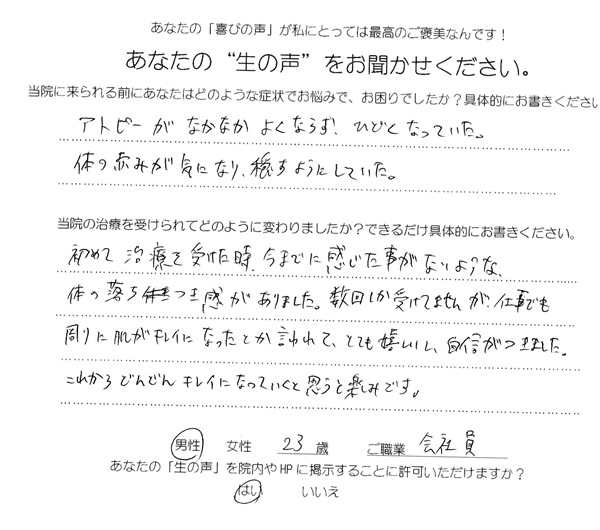 あなたの「喜びの声」が私にとっては最高のご褒美なんです！
あなたの“生の声”をお聞かせください。
当院に来られる前にあなたはどのような症状でお悩みで、お困りでしたか？具体的にお書きください
アトピーが なかなか よくならず、ひどくなっていた。
体の赤みが気になり、隠すようにしていた。
当院の治療を受けられてどのように変わりましたか？できるだけ具体的にお書きください。
初めて治療を受けた時、今までに感じた事がないような、
体の落ちつき感がありました。数回しか受けてませんが、仕事でも
周りに肌がキレイになったとか言われて、とても嬉しいし、自信がつきました。
これからどんどんキレイになっていくと思うと楽しみです。
男性 女性 23 歳 ご職業 会社員
あなたの「生の声」を院内やHPに掲示することに許可いただけますか？
はい いいえ